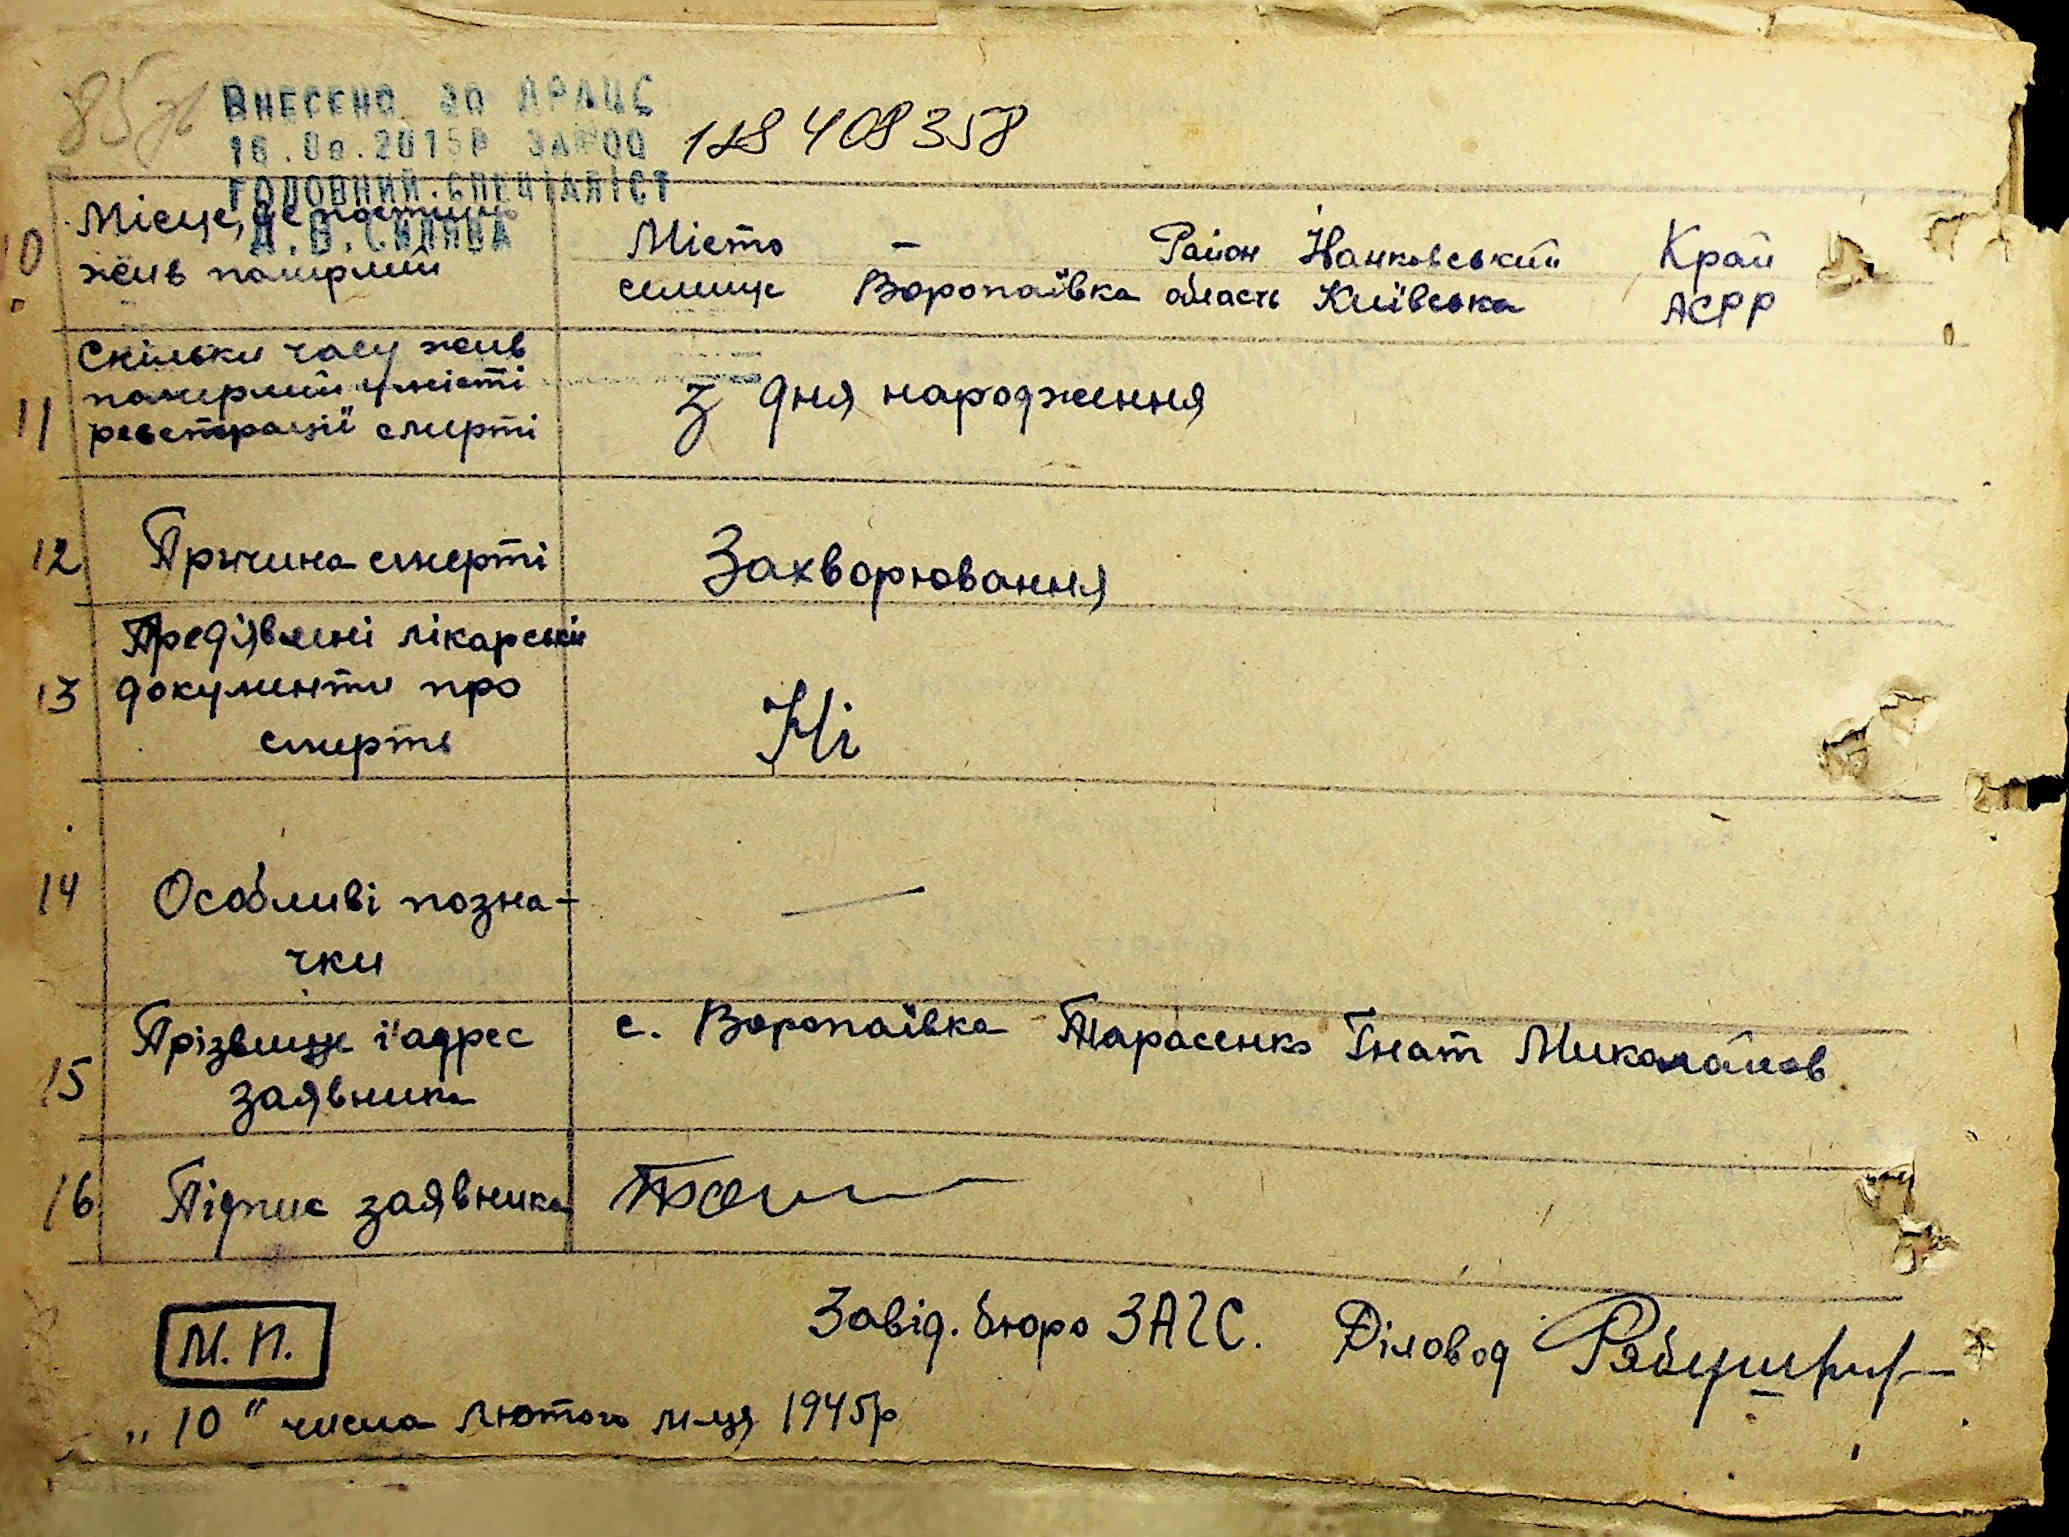 85
ВНЕСЕНО ДО ДРАЦС
ГОЛОВНИЙ СПЕЦІАЛІСТ
128 408 358
10
Місце, де постійно
жив померлий
Місто – Район Іванковський Край
селище Воропаївка область Київська АСРР
11
Скільки часу жив
померлий у місті
реєстрації смерті
З дня народження
12
Причина смерті
Захворювання
13
Предʼявлені лікарські
документи про
смерть
Ні
14
Особливі позна-
чки
—
15
Прізвище і адрес
заявника
с. Воропаївка Тарасенко Гнат Миколайов.
16
Підпис заявника
Завід. бюро ЗАГС. Діловод
М. П.
„ 10 " числа лютого м-ця 1945р